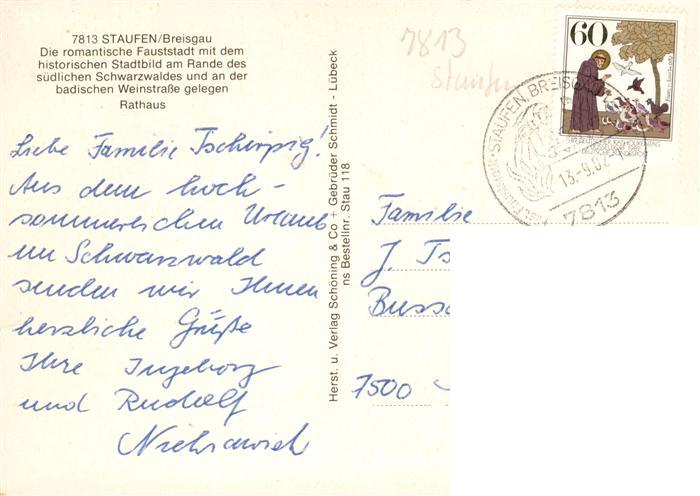 7813 STAUFEN/Breisgau
Die romantische Fauststadt mit dem
historischen Stadtbild am Rande des
südlichen Schwarzwaldes und an der
badischen Weinstraße gelegen
Rathaus
Liebe Familie Tschirpig!
Aus dem hoch-
sommerlichen Urlaub
im Schwarzwald
senden wir Ihnen
herzliche Grüße
Ihre Ingeborg
und Rudolf
Herst. u. Verlag Schöning & Co + Gebrüder Schmidt - Lübeck
ns Bestellnr. Stau 118
7813
Staufen
60
STAUFEN, BREISGAU
13.-9.82
7813
Familie
J. Ts
Bussc
7500